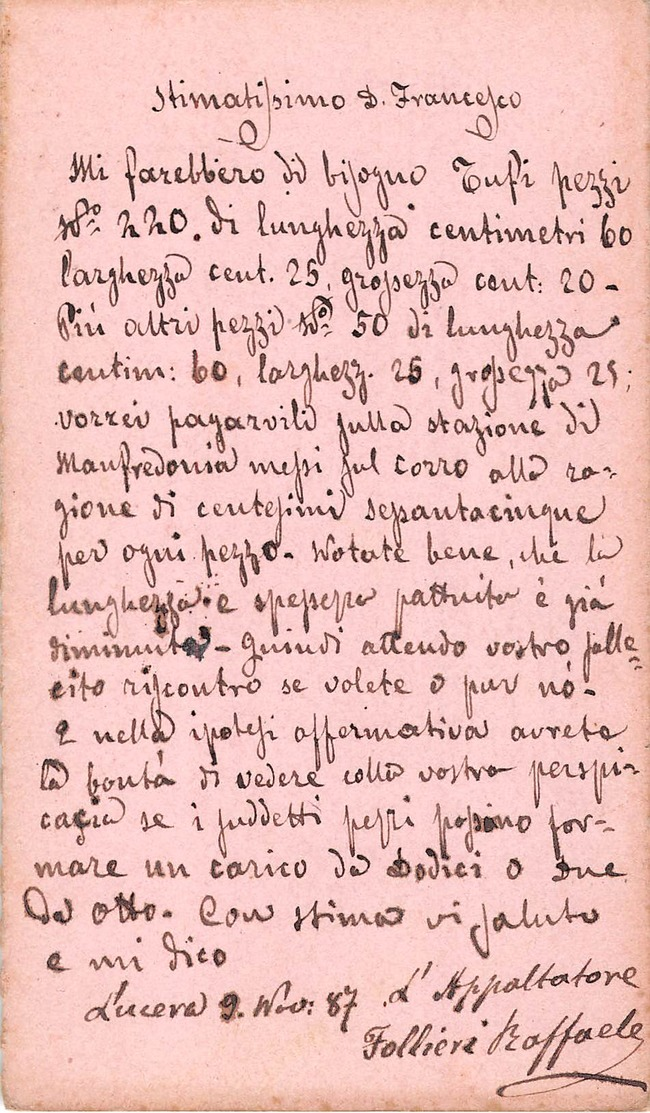 Stimatissimo D. Francesco
Mi farebbero di bisogno Tufi pezzi
No 220. di lunghezza centimetri 60
larghezza cent. 25, grossezza cent: 20 -
Più altri pezzi No 50 di lunghezza
centim: 60, larghezz. 25, grossezza 25;
vorrei pagarvili sulla stazione di
Manfredonia messi sul corro alla ra-
gione di centesimi sessantacinque
per ogni pezzo - Notate bene, che la
lunghezza e spessezza pattuita è già
diminuita - Quindi attendo vostro solle-
cito riscontro se volete o pur nò -
E nella ipotesi affermativa avrete
la bontà di vedere colla vostra perspi-
cacia se i suddetti pezzi possino for-
mare un carico da Dodici o due
da otto - Con stima vi saluto
e mi dico
Lucera 9. Nov: 87 L'Appaltatore
Follieri Raffaele